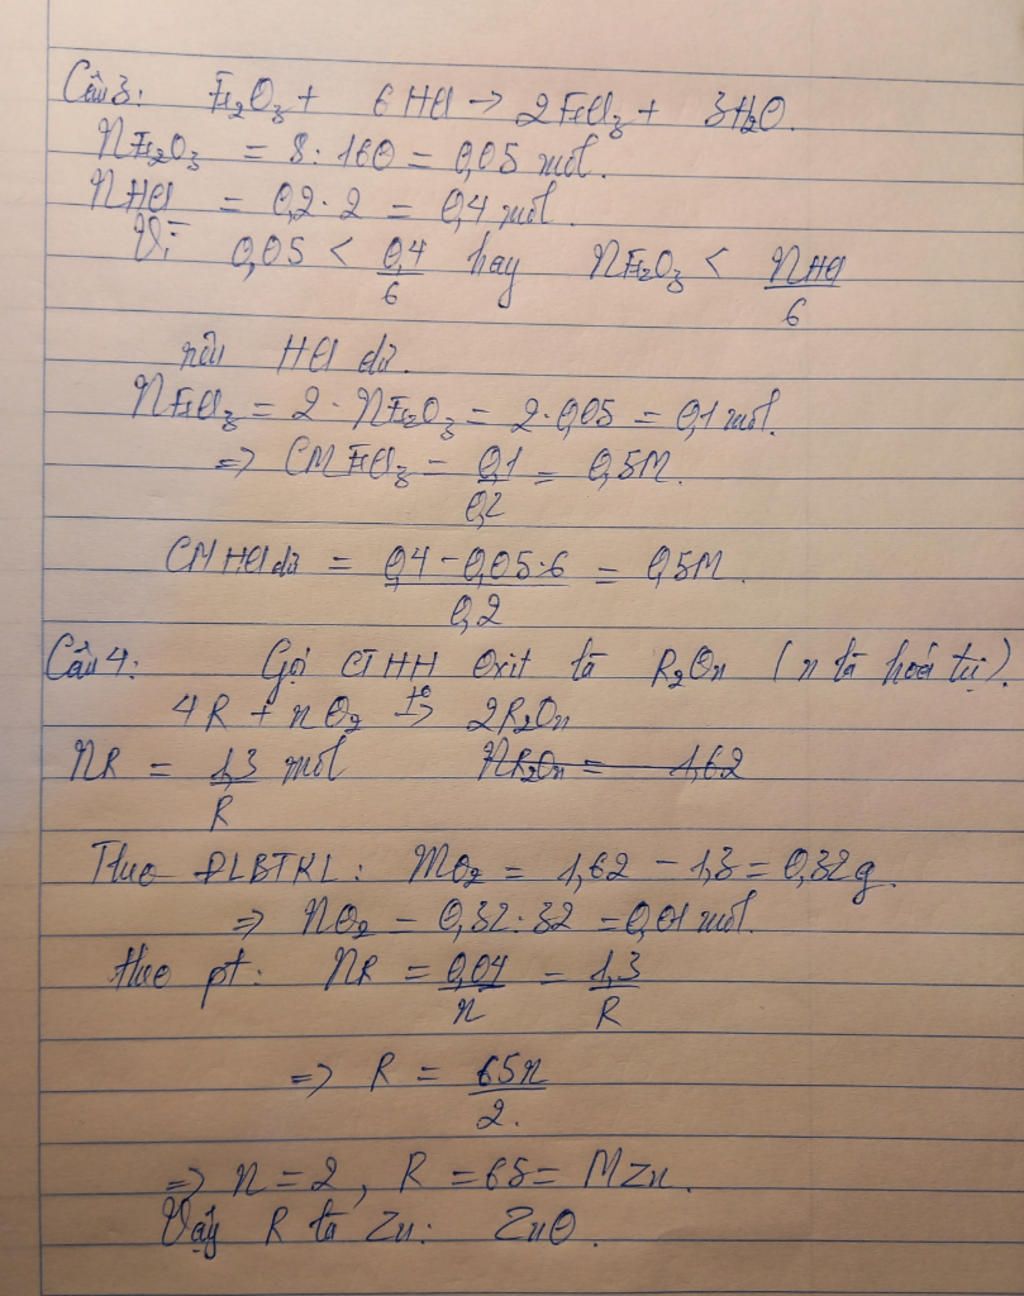 Câu 3: Fe₂O₃ + 6HCl → 2FeCl₃ + 3H₂O.
nFe₂O₃ = 8 : 160 = 0,05 mol.
nHCl = 0,2 . 2 = 0,4 mol.
Vì 0,05 < 0,4/6 hay nFe₂O₃ < nHCl/6
nên HCl dư.
nFeCl₃ = 2 . nFe₂O₃ = 2 . 0,05 = 0,1 mol.
=> CM FeCl₃ = 0,1/0,2 = 0,5M.
CM HCl dư = (0,4 - 0,05.6)/0,2 = 0,5M.
Câu 4: Gọi CTHH Oxit là R₂Oₙ (n là hoá trị).
4R + nO₂ t°→ 2R₂Oₙ
nR = 1,3/R mol nR₂Oₙ = 1,62
Theo ĐLBTKL: mO₂ = 1,62 - 1,3 = 0,32g.
=> nO₂ = 0,32 : 32 = 0,01 mol.
theo pt: nR = 0,04/n = 1,3/R
=> R = 65n/2.
=> n = 2, R = 65 = MZn.
Vậy R là Zn: ZnO.